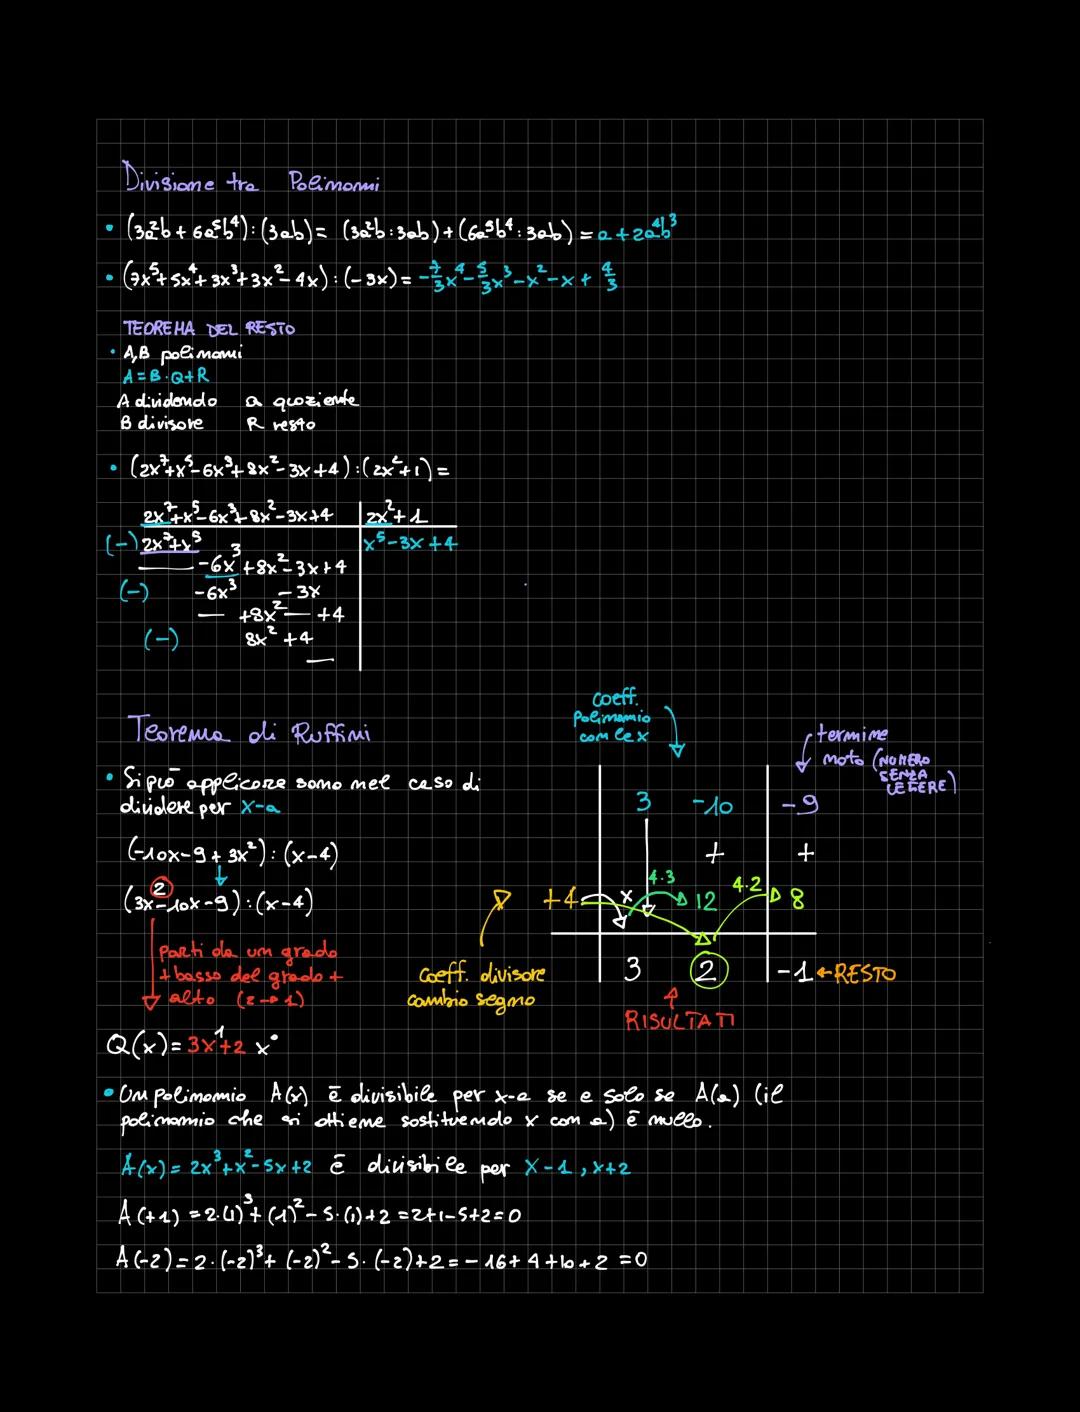 Divisione tra Polinomi
• (3a²b + 6a⁵b⁴) : (3ab) = (3a²b : 3ab) + (6a⁵b⁴ : 3ab) = a + 2a⁴b³
• (7x⁵ + 5x⁴ + 3x³ + 3x² - 4x) : (-3x) = -7/3x⁴ - 5/3x³ - x² - x + 4/3
TEOREMA DEL RESTO
• A,B polinomi
A = B · Q + R
A dividendo Q quoziente
B divisore R resto
• (2x⁷+x⁵-6x³+8x²-3x+4) : (2x²+1) =
2x⁷+x⁵-6x³+8x²-3x+4 | 2x²+1
(-) 2x⁷+x⁵ | x⁵-3x+4
-6x³+8x²-3x+4
(-) -6x³ -3x
+8x² +4
(-) 8x² +4
Teorema di Ruffini
• Si può applicare sono nel caso di
dividere per x-a
(-10x-9+3x²) : (x-4)
(3x²-10x-9) : (x-4)
parti da um grado
+ basso del grado +
alto (2→1)
Q(x) = 3x¹+2 x⁰
coeff.
polinomio
con le x
termine
noto (NUMERO
SENZA
LETTERE)
3 -10 -9
+ +
4·3 4·2
+4 x 12 8
coeff. divisore
cambio segno
3 2 -1 ← RESTO
RISULTATI
• Un polinomio A(x) è divisibile per x-a se e solo se A(a) (il
polinomio che si ottiene sostituendo x con a) è nullo.
A(x) = 2x³+x²-5x+2 è divisibile per x-1, x+2
A(+1) = 2·(1)³+(1)²-5·(1)+2 = 2+1-5+2=0
A(-2) = 2·(-2)³+(-2)²-5·(-2)+2 = -16+4+10+2 =0